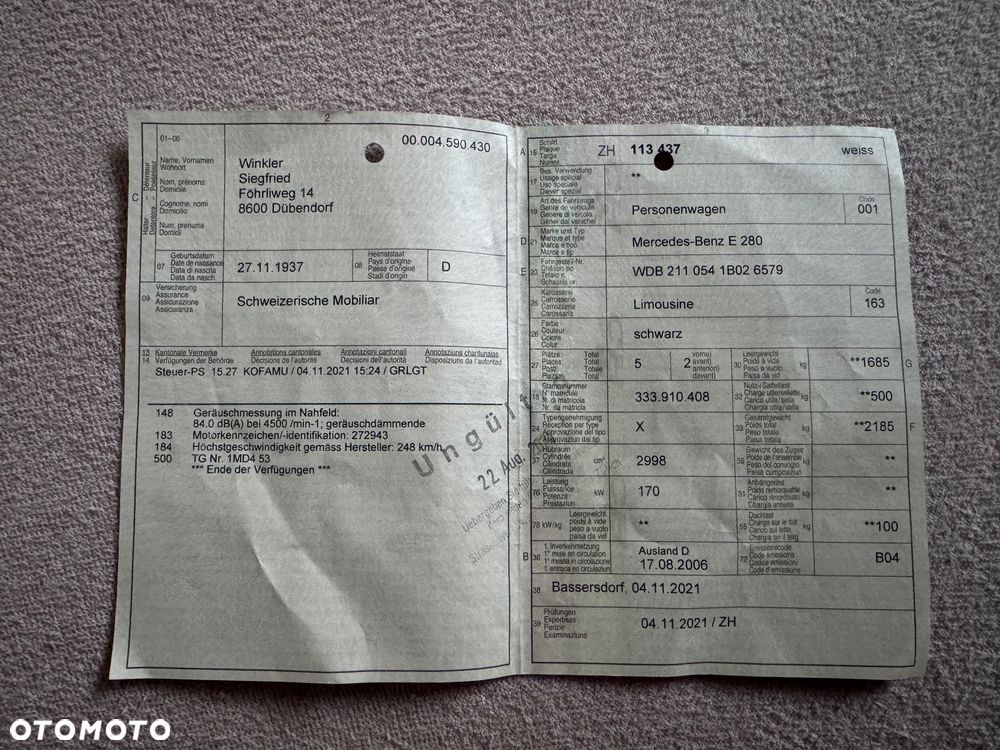 2
01-06
00.004.590.430
C
Name, Vornamen
Wohnort
Nom, prénoms
Domicile
Cognome, nomi
Domicilio
Num, prenums
Domicil
Winkler
Siegfried
Föhrliweg 14
8600 Dübendorf
07
Geburtsdatum
Date de naissance
Data di nascita
Data da nasch.
27.11.1937
08
Heimatstaat
Pays d'origine
Paese d'origine
Stadi d'origin
D
09
Versicherung
Assurance
Assicurazione
Assicuranza
Schweizerische Mobiliar
13 Kantonale Vermerke Annotations cantonales Annotazioni cantonali Annotaziuns chantunalas
14 Verfügungen der Behörde Décisions de l'autorité Decisioni dell'autorità Disposiziuns da l'autoritad
Steuer-PS 15.27 KOFAMU / 04.11.2021 15:24 / GRLGT
148 Geräuschmessung im Nahfeld:
84.0 dB(A) bei 4500 /min-1; geräuschdämmende
183 Motorkennzeichen/-identifikation: 272943
184 Höchstgeschwindigkeit gemäss Hersteller: 248 km/h
500 TG Nr. 1MD4 53
*** Ende der Verfügungen ***
Ungült
22 Aug.
3
A 15
Schild
Plaque
Targa
Numer
ZH 113 437 weiss
17
Bes. Verwendung
Usage spécial
Uso speciale
Diever spezial
**
19
Art des Fahrzeugs
Genre de véhicule
Genere di veicolo
Gener dal vehichel
Personenwagen
Code
001
D 21
Marke und Typ
Marque et type
Marca e tipo
Marca e tip
Mercedes-Benz E 280
E 23
Fahrgestell-Nr.
Châssis no
Telaio n.
Schassis nr.
WDB 211 054 1B02 6579
25
Karosserie
Carrosserie
Carrozzeria
Carossaria
Limousine
Code
163
26
Farbe
Couleur
Colore
Colur
schwarz
27
Plätze: Total
Places: Total
Posti: Totale
Plazs: Total
5
2
vorne)
avant)
anteriori)
davant)
30
Leergewicht
Poids à vide
Peso a vuoto
Paisa da vid
kg
**1685
G
18
Stammnummer
N° matricule
N. di matricola
Nr. da matricla
333.910.408
32
Nutz-/Sattellast
Charge utile/sellette
Carico utile/sella
Chargia utila/sella
kg
**500
24
Typengenehmigung
Réception par type
Approvazione del tipo
Approvaziun dal tip
X
33
Gesamtgewicht
Poids total
Peso totale
Paisa totala
kg
**2185
F
37
Hubraum
Cylindrée
Cilindrata
Cilindrada
cm³
2998
35
Gewicht des Zuges
Poids de l'ensemble
Peso del convoglio
Paisa cumposiziun
kg
**
76
Leistung
Puissance
Potenza
Prestaziun
kW
170
31
Anhängelast
Poids remorquable
Carico rimorchiato
Chargia annexa
kg
**
78 kW/kg
Leergewicht
poids à vide
peso a vuoto
paisa da vid
**
55
Dachlast
Charge sur le toit
Carico sul tetto
Chargia sin il tetg
kg
**100
B 36
1. Inverkehrsetzung
1re mise en circulation
1a messa in circolazione
1 entrada en circulaziun
Ausland D
17.08.2006
72
Emissionscode
Code émissions
Codice emissioni
Code d'emissiuns
B04
38
Bassersdorf, 04.11.2021
39
Prüfungen
Expertises
Perizie
Examinaziuns
04.11.2021 / ZH
OTOMOTO